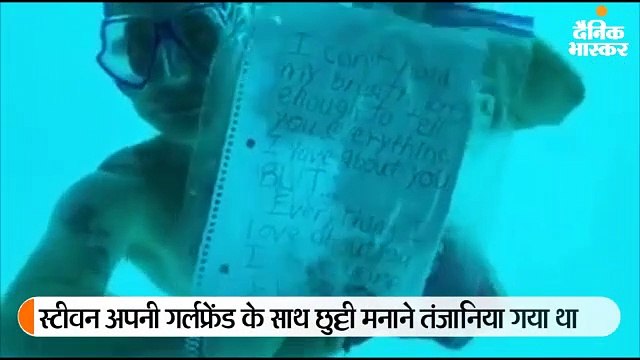 दैनिक
भास्कर
I can't hold
my breath long
enough to tell
you everything
I love about you
BUT...
Everything I
love about you
I
स्टीवन अपनी गर्लफ्रेंड के साथ छुट्टी मनाने तंजानिया गया था